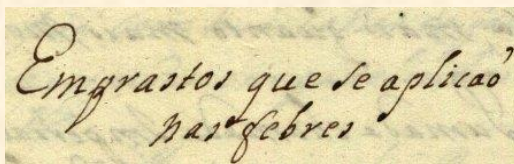 Emgrastos que se aplicaõ
nas febres